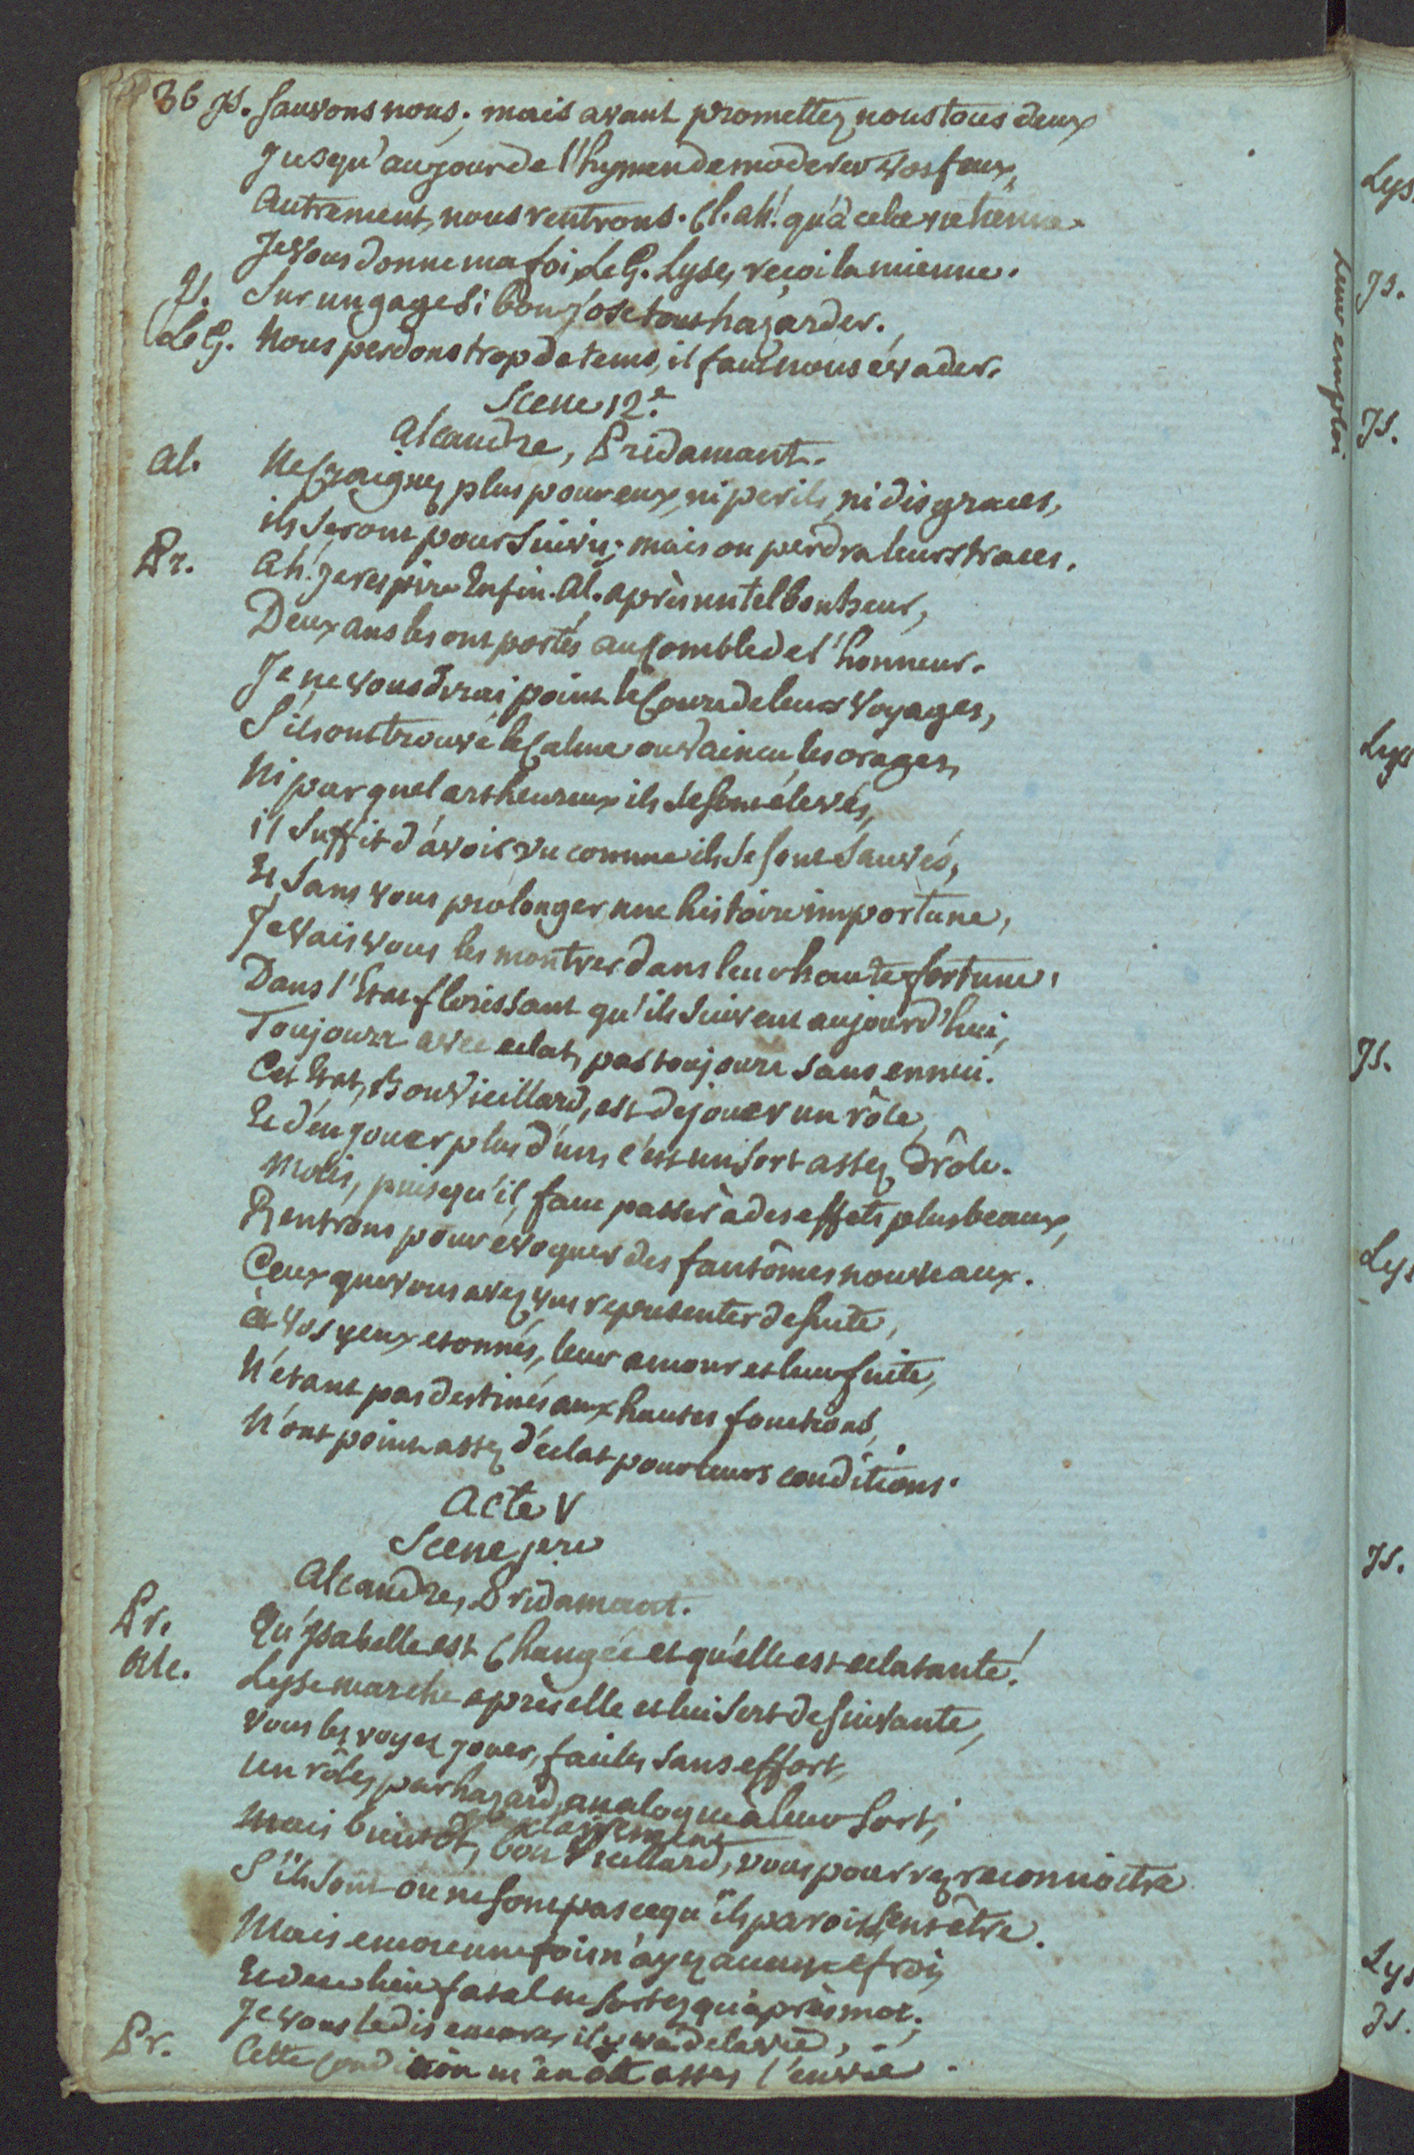 36 Js. Sauvons nous; mais avant promettez nous tous deux
Jusqu'au jour de l'hymen de moderer vos feux,
Autrement, nous rentrons. Cl. ah! qu'à cela ne tienne.
Je vous donne ma foi, Le G. Lyse, reçoi la mienne.
Js. Sur un gage si bon j'ose tout hazarder.
Le G. Nous perdons trop de tems, il faut nous évader.
Scene 12e.
Alcandre, Pridamant.
Al. Ne craignez plus pour eux, ni perils, ni disgraces,
ils seront poursuivis; mais on perdra leurs traces.
Pr. Ah! je respire Enfin. Al. après un tel bonheur,
Deux ans les ont portés au comble de l'honneur.
Je ne vous dirai point le cours de leurs voyages,
S'ils ont trouvé le calme ou vaincu les orages,
Ni par quel art heureux ils se sont élevés,
il suffit d'avoir vu comme ils se sont sauvés,
Et sans vous prolonger une histoire importune,
Je vais vous les montrer dans leur haute fortune,
Dans l'Etat florissant qu'ils suivent aujourd'hui,
Toujours avec eclat, pas toujours sans ennui.
Cet Etat, Bon Vieillard, est de jouer un rôle,
Et d'en jouer plus d'un, c'est un sort assez drôle.
Mais, puisqu'il faut passer à des effets plus beaux,
Rentrons pour évoquer des fantômes nouveaux.
Ceux que vous avez vus representer de suite,
à Vos yeux etonnés, leur amour et leur fuite,
N'étant pas destinés aux hautes fonctions,
N'ont point assez d'éclat pour leurs conditions.
Acte V
Scene jere
Alcandre, Pridamant.
Pr. Qu'Jsabelle est Changée et qu'elle est eclatante!
Alc. Lyse marche après elle et lui sert de suivante,
Vous les voyez jouer, sans effort,
Un rôle, par hazard, analogue à leur sort;
Mais bientôt, bon Vieillard, vous pourrez reconnoitre
S'ils sont ou ne sont pas ce qu'ils paroissent être.
Mais encore une fois n'ayez aucun effroi,
Et de ce lieu fatal ne sortez qu'après moi;
Je vous le dis encore, il y va de la vie,
Pr. Cette condition m'en ôte assez l'envie.
leur emploi
Lys
Js.
Js.
Lys
Js.
Lys
Js.
Lys
Js.